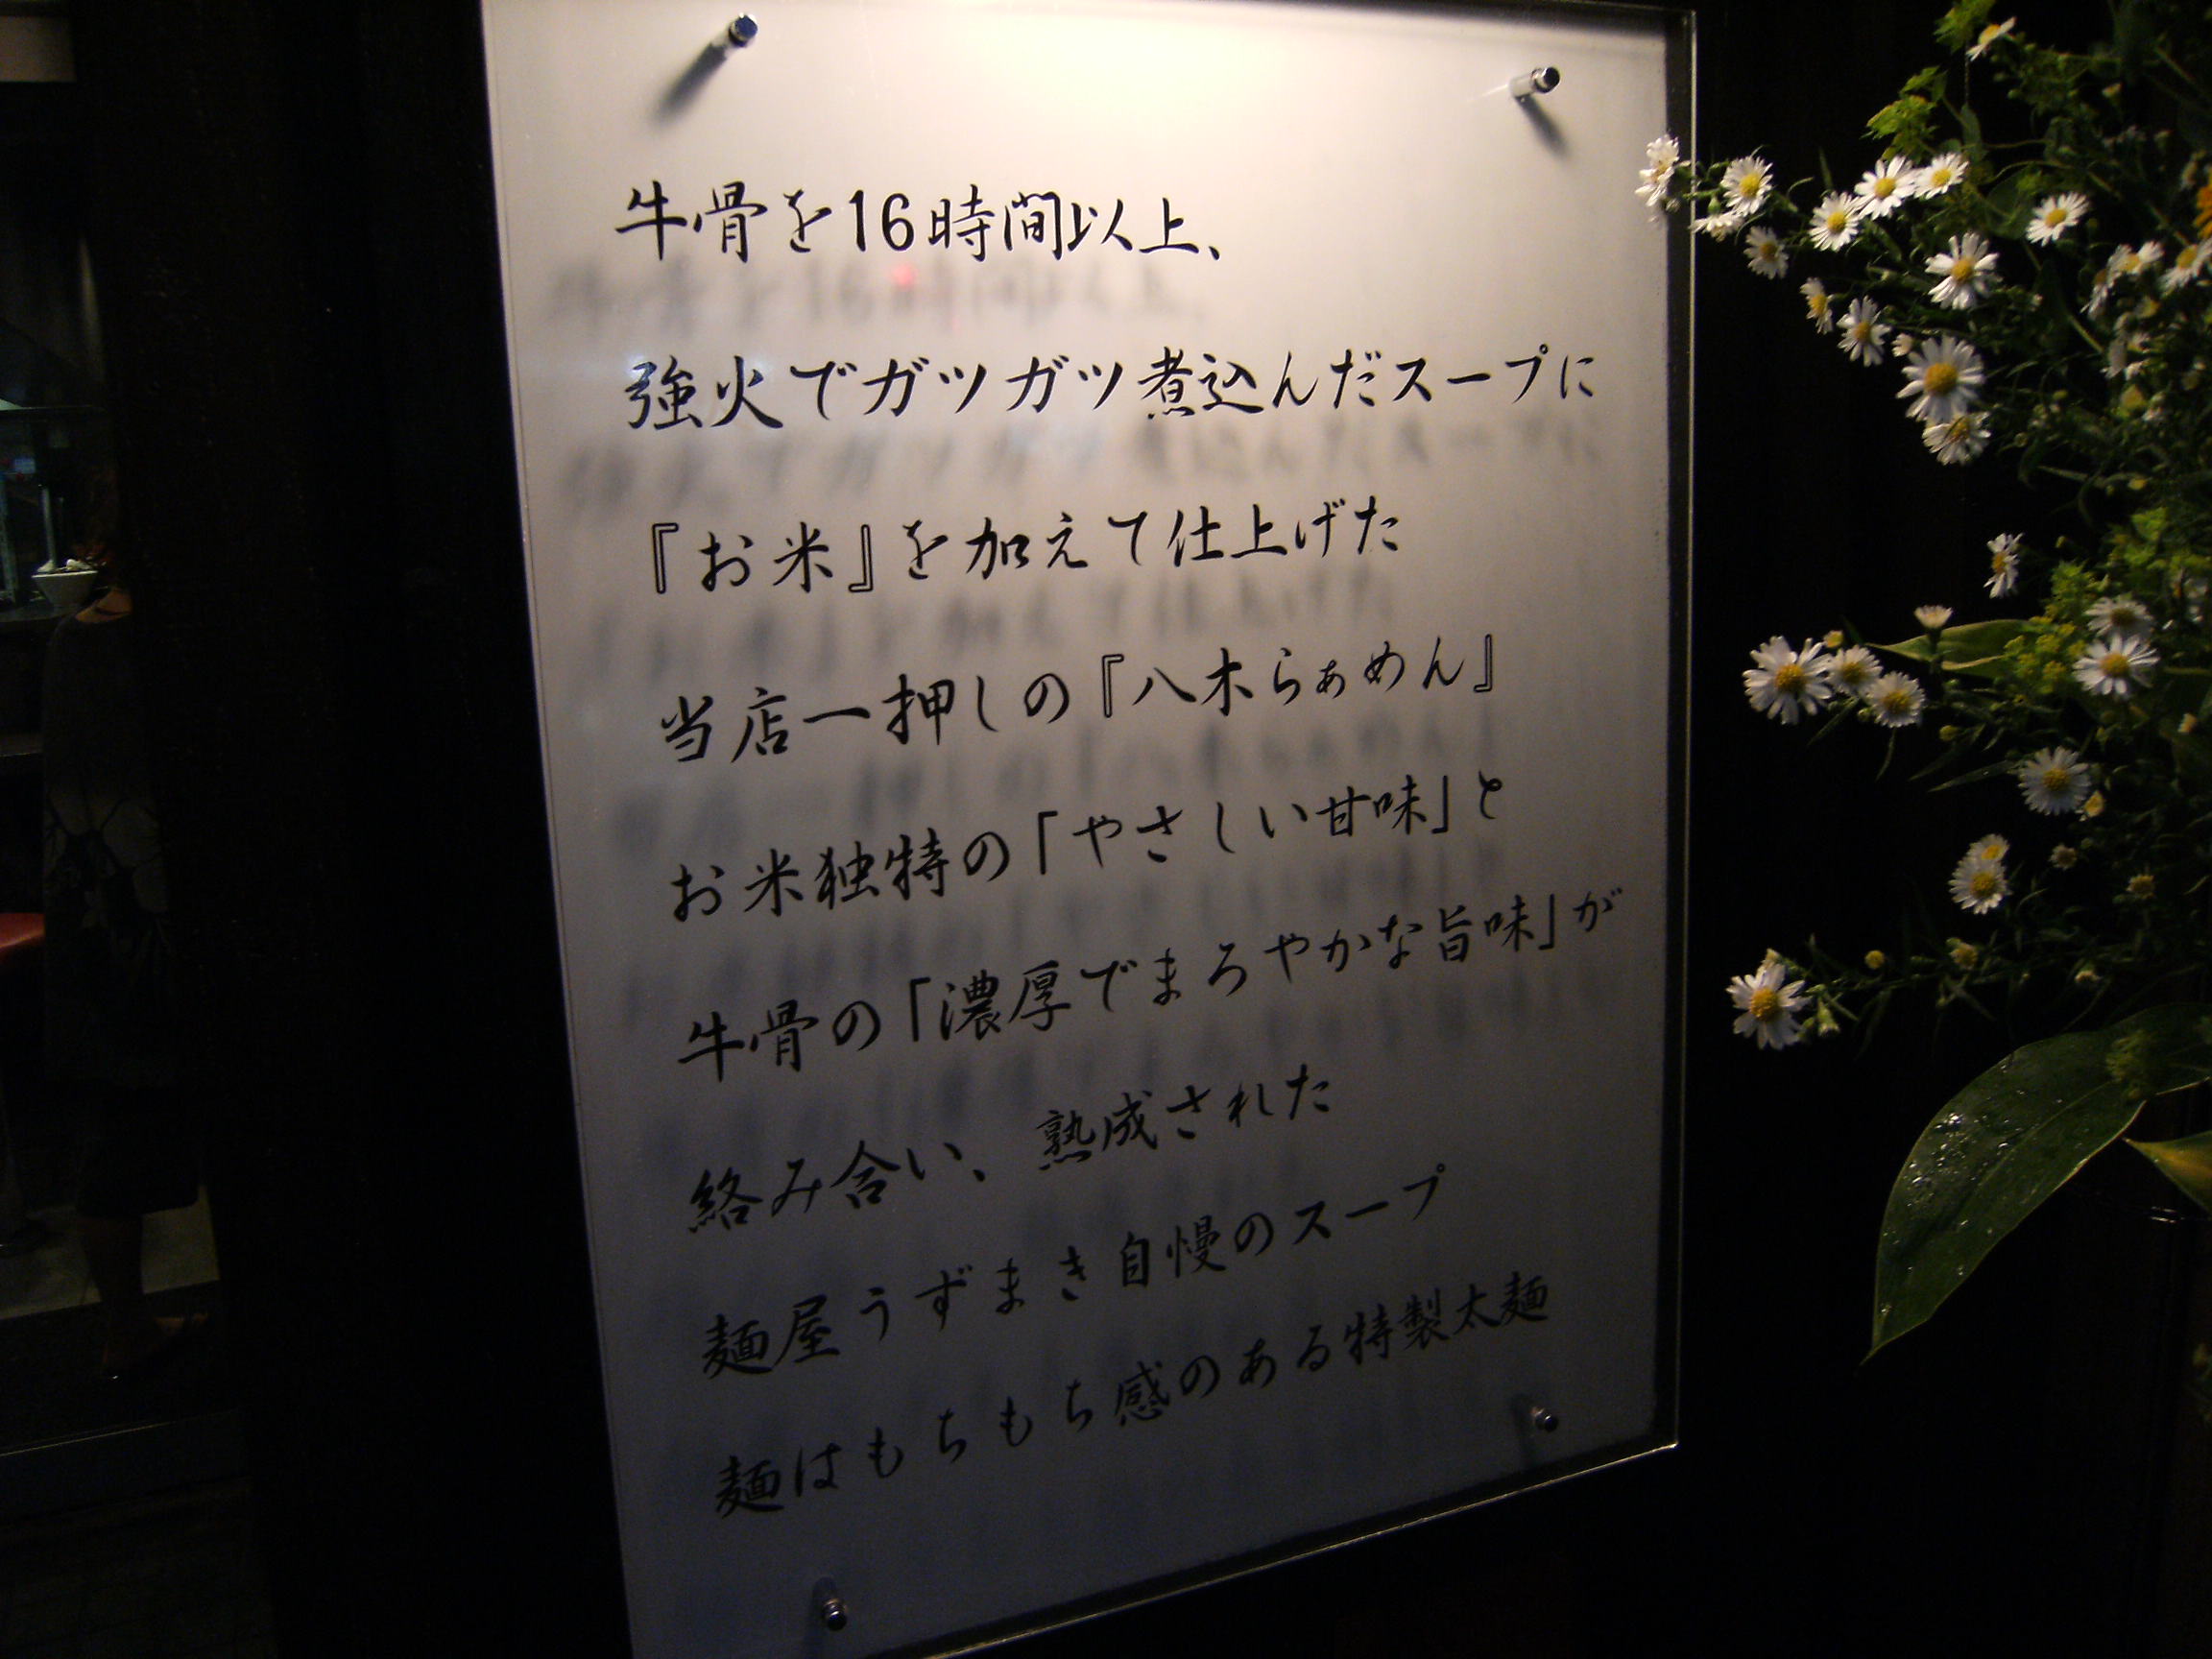 牛骨を16時間以上、
強火でガツガツ煮込んだスープに
『お米』を加えて仕上げた
当店一押しの『八木らぁめん』
お米独特の「やさしい甘味」と
牛骨の「濃厚でまろやかな旨味」が
絡み合い、熟成された
麺屋うずまき自慢のスープ
麺はもちもち感のある特製太麺